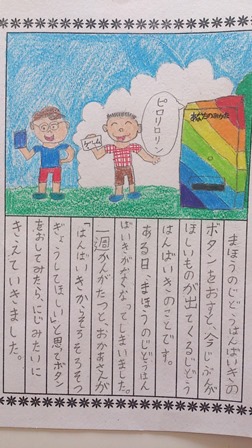 あなたのみかた
ピロリロリン
まほうのじどうはんばいきの
ボタンをおすと、今じぶんが
ほしいものが出てくるじどう
はんばいきのことです。
ある日、まほうのじどうはん
ばいきがなくなってしまいました。
一週かんがたつと、おかあさんが
「はんばいきからそろそろそつ
ぎょうしてほしい」と思てボタン
をおしてみたら、にじみたいに
きえていきました。